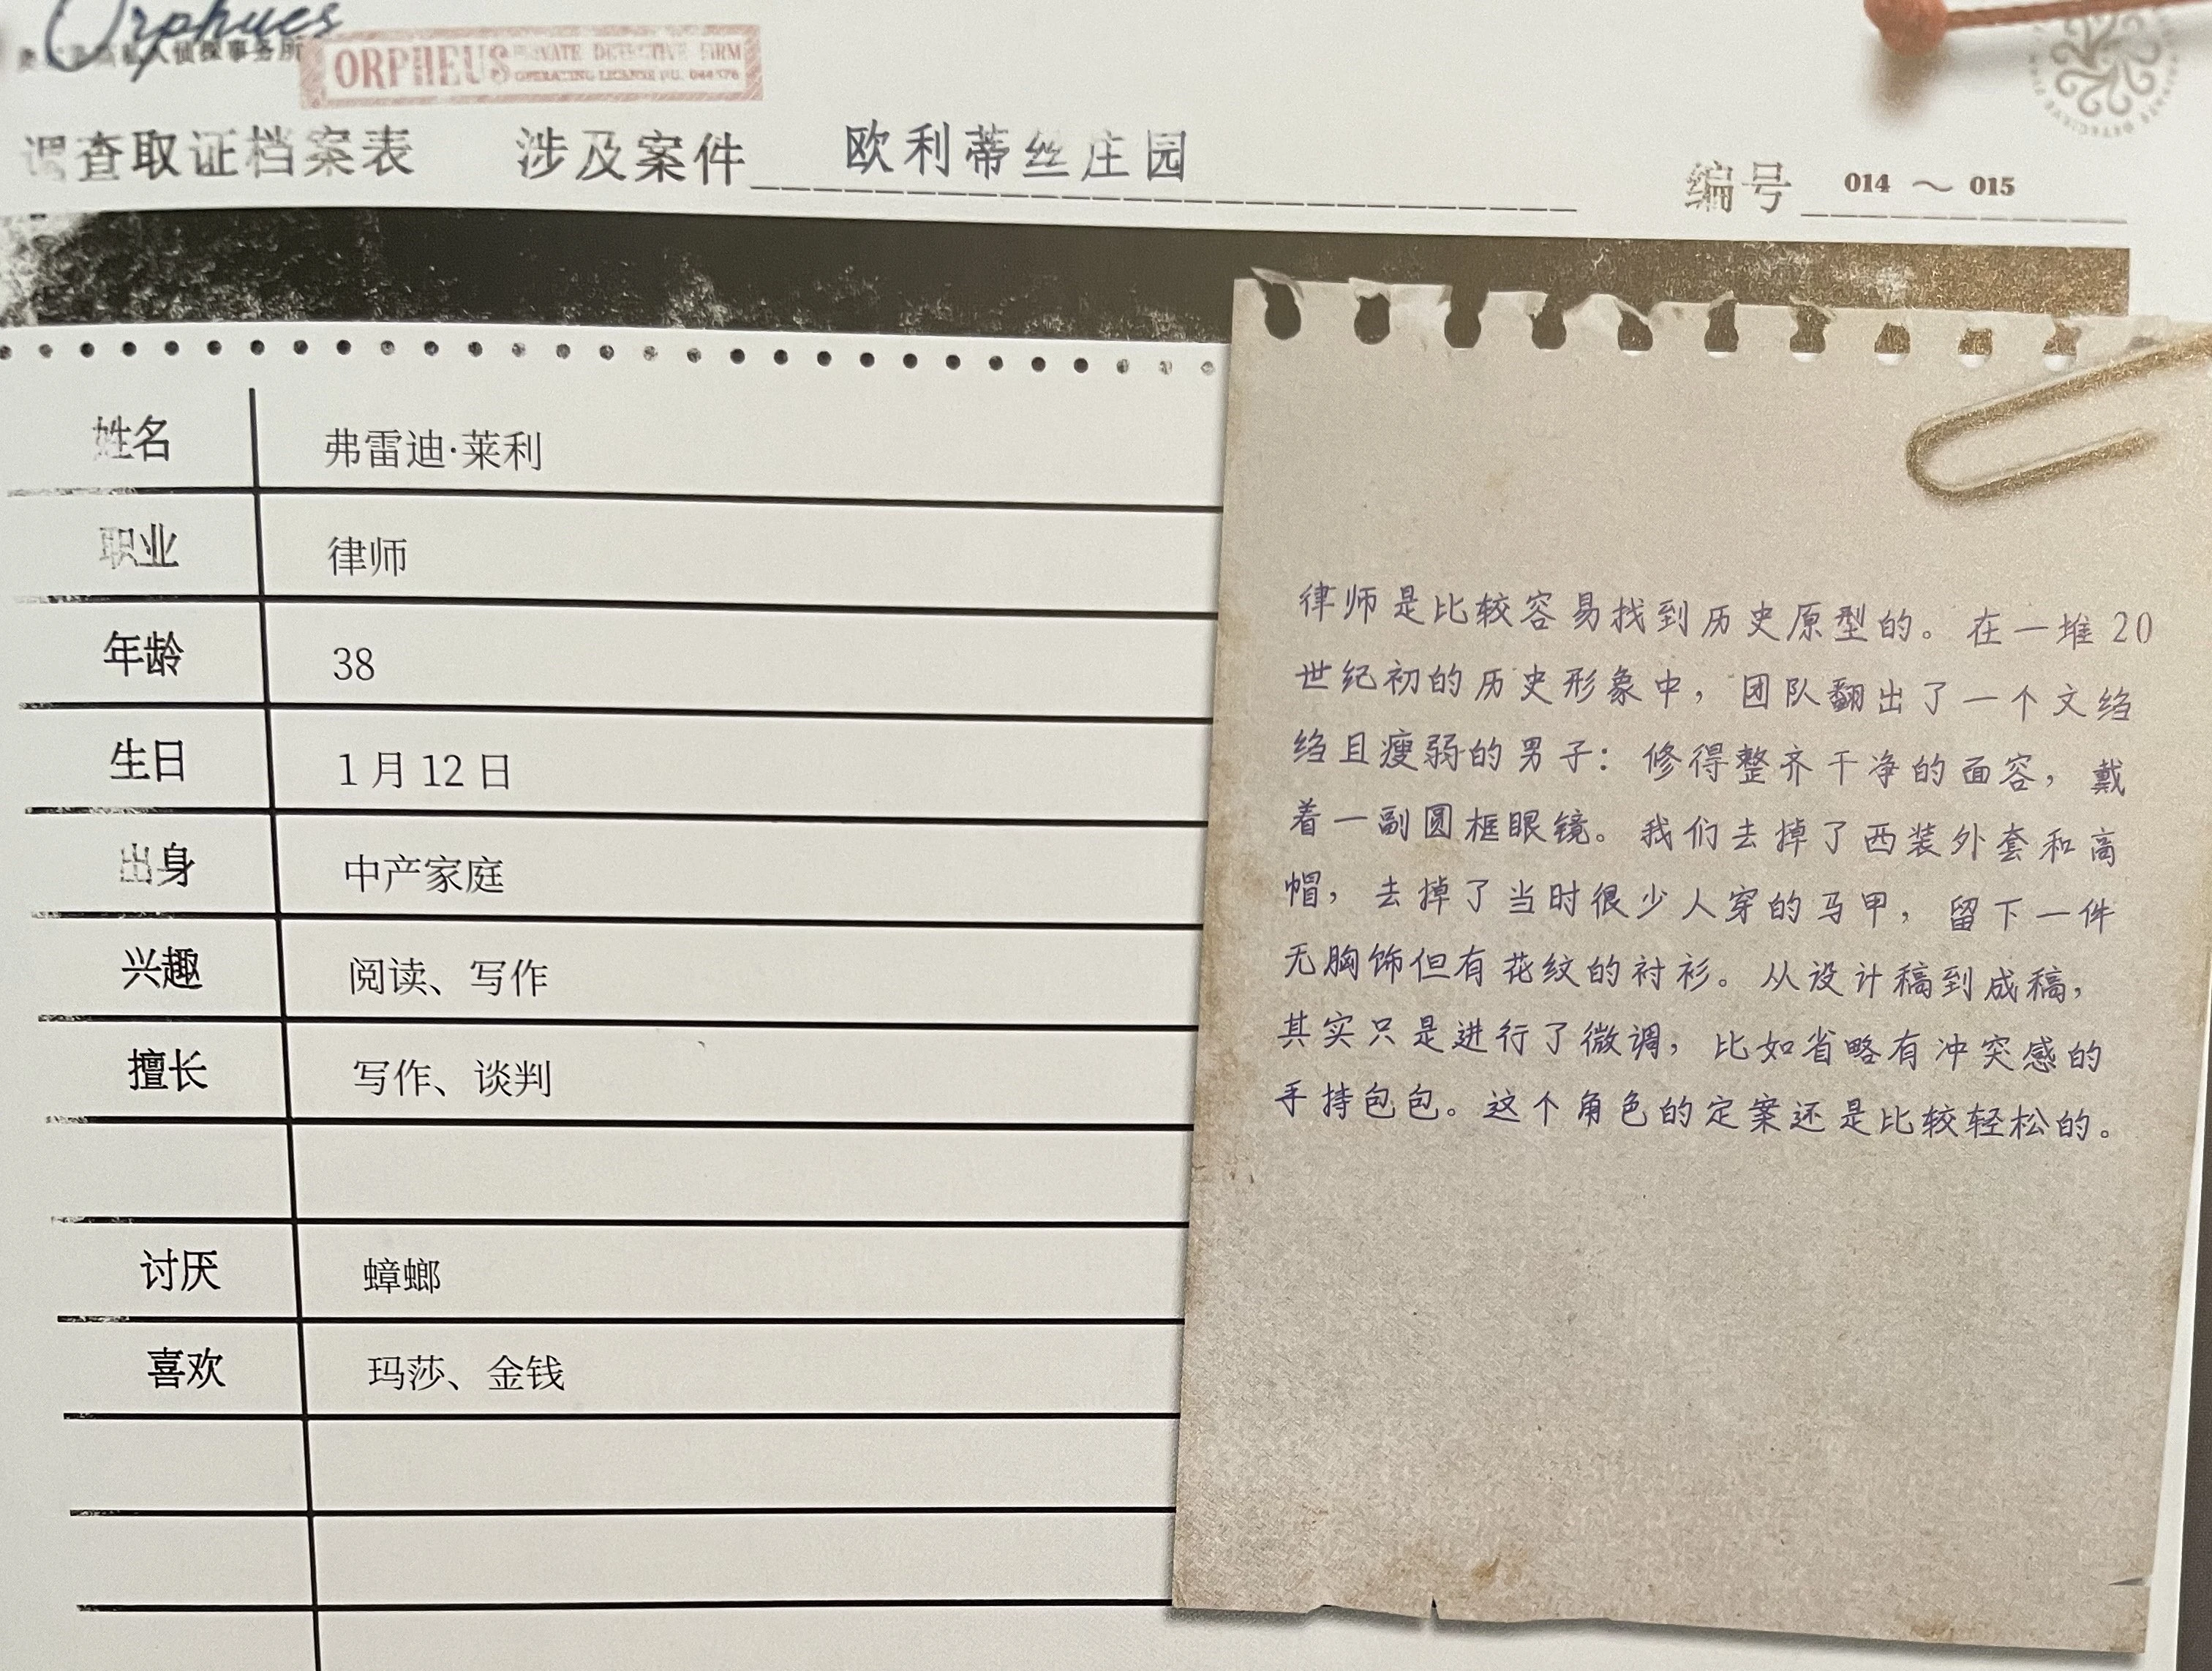 Orphues
侦探事务所
ORPHEUS PRIVATE DETECTIVE FIRM
OPERATING LICENSE NO.
调查取证档案表 涉及案件 欧利蒂丝庄园 编号 014 ~ 015
姓名 弗雷迪·莱利
职业 律师
年龄 38
生日 1月12日
出身 中产家庭
兴趣 阅读、写作
擅长 写作、谈判
讨厌 蟑螂
喜欢 玛莎、金钱
律师是比较容易找到历史原型的。在一堆20
世纪初的历史形象中，团队翻出了一个文绉
绉且瘦弱的男子：修得整齐干净的面容，戴
着一副圆框眼镜。我们去掉了西装外套和高
帽，去掉了当时很少人穿的马甲，留下一件
无胸饰但有花纹的衬衫。从设计稿到成稿，
其实只是进行了微调，比如省略有冲突感的
手持包包。这个角色的定案还是比较轻松的。